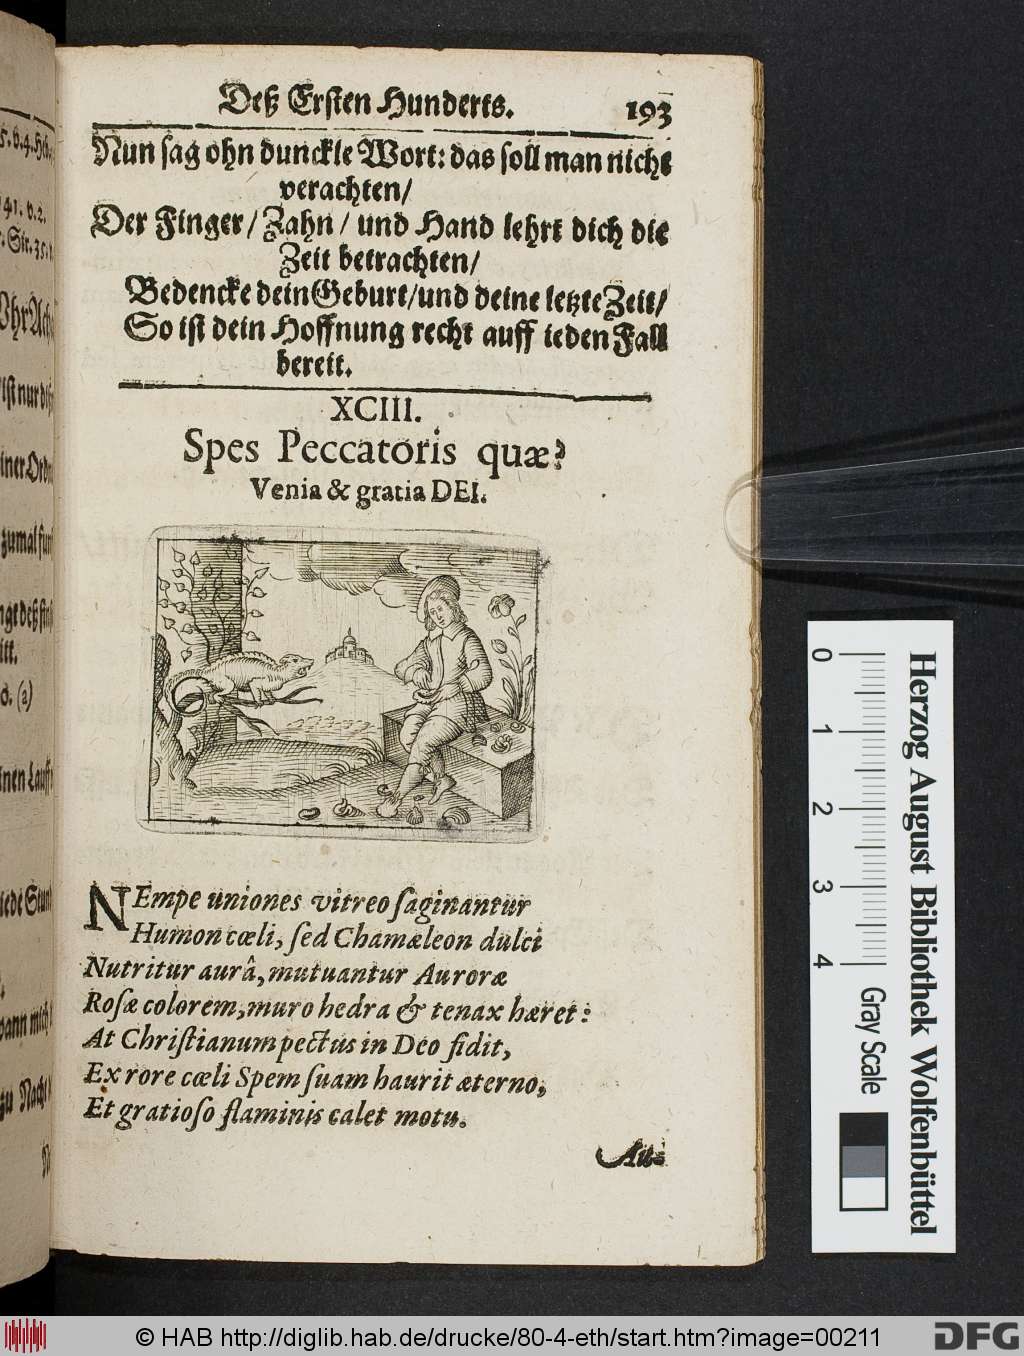 Deß Ersten Hunderts. 193
Nun sag ohn dunckle Wort: das soll man nicht
verachten/
Der Finger/ Zahn/ und Hand lehrt dich die
Zeit betrachten/
Bedencke dein Geburt/und deine letzte Zeit/
So ist dein Hoffnung recht auff ieden Fall
bereit.
XCIII.
Spes Peccatoris quæ?
Venia & gratia DEI.
NEmpe uniones vitreo saginantur
Humon cœli, sed Chamæleon dulci
Nutritur aurâ, mutuantur Auroræ
Rosæ colorem, muro hedra & tenax hæret:
At Christianum pectus in Deo fidit,
Ex rore cœli Spem suam haurit æterno,
Et gratioso flaminis calet motu.
Herzog August Bibliothek Wolfenbüttel
0 1 2 3 4
Gray Scale
© HAB http://diglib.hab.de/drucke/80-4-eth/start.htm?image=00211
DFG